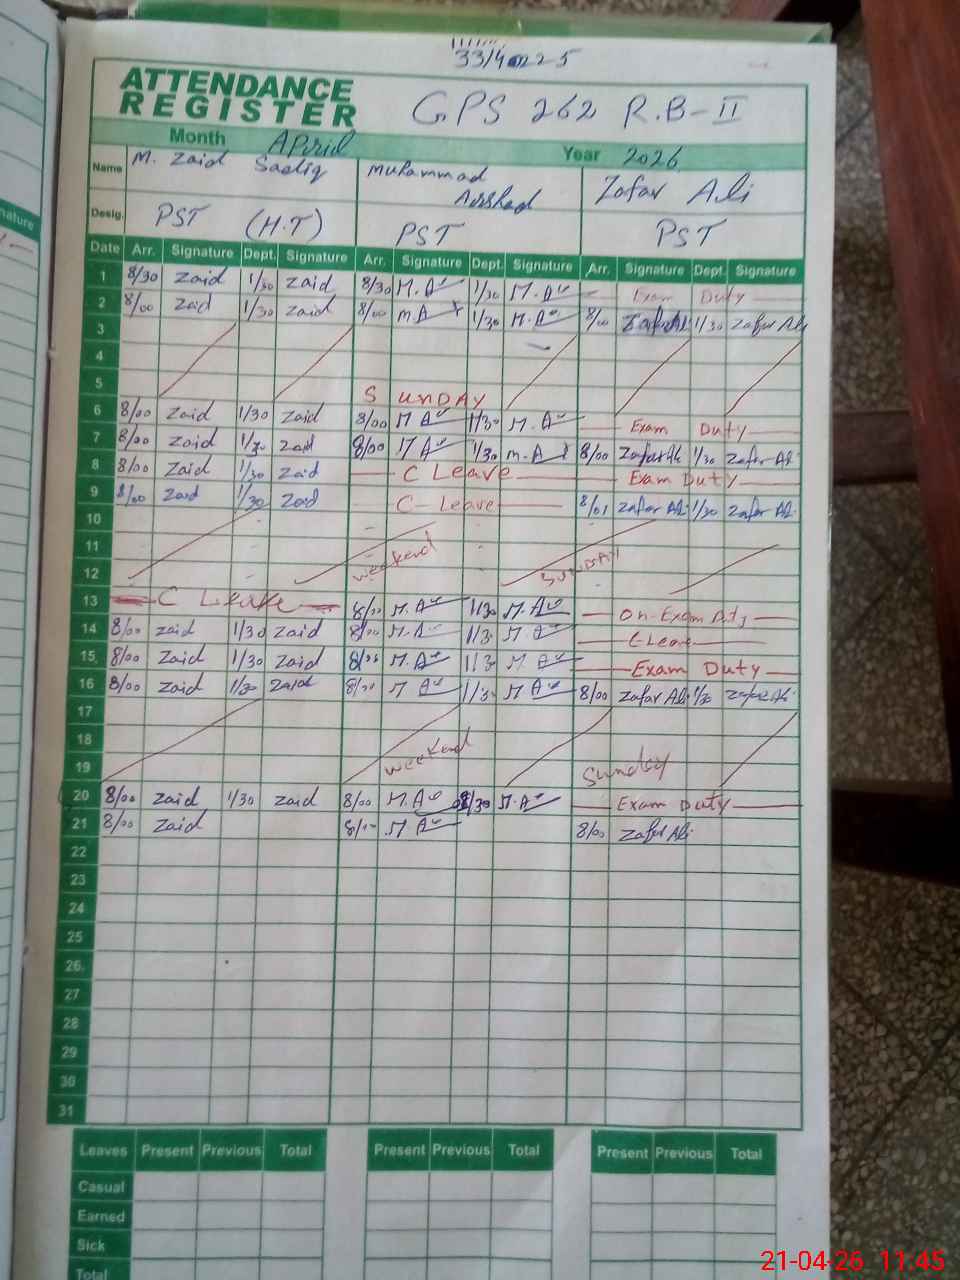 33140225
ATTENDANCE
REGISTER
GPS 262 R.B-II
Month APrid Year 2026
Name M. Zaid Sadiq Muhammad Arshad Zafar Ali
Desig. PST (H.T) PST PST
Date Arr. Signature Dept. Signature Arr. Signature Dept. Signature Arr. Signature Dept. Signature
1 8/30 Zaid 1/30 Zaid 8/30 M.A 1/30 M.A Exam Duty
2 8/00 Zaid 1/30 Zaid 8/00 M.A 1/30 M.A 8/00 Zafar Ali 1/30 Zafar Ali
3
4
5 SUNDAY
6 8/00 Zaid 1/30 Zaid 8/00 M.A 1/30 M.A Exam Duty
7 8/00 Zaid 1/30 Zaid 8/00 M.A 1/30 M.A 8/00 Zafar Ali 1/30 Zafar Ali
8 8/00 Zaid 1/30 Zaid C Leave Exam Duty
9 8/00 Zaid 1/30 Zaid C-Leave 8/01 Zafar Ali 1/30 Zafar Ali
10
11 weekend SUNDAY
12
13 C Leave 8/00 M.A 1/30 M.A On-Exam
14 8/00 Zaid 1/30 Zaid 8/00 M.A 1/30 M.A C Leave
15 8/00 Zaid 1/30 Zaid 8/00 M.A 1/30 M.A Exam Duty
16 8/00 Zaid 1/30 Zaid 8/00 M A 1/30 M A 8/00 Zafar Ali 1/30 Zafar Ali
17
18 weekend
19 Sunday
20 8/00 Zaid 1/30 Zaid 8/00 M.A 1/30 M.A Exam Duty
21 8/00 Zaid 8/00 M A 8/00 Zafar Ali
22
23
24
25
26
27
28
29
30
31
Leaves Present Previous Total Present Previous Total Present Previous Total
Casual
Earned
Sick
Total
21-04-26 11:45